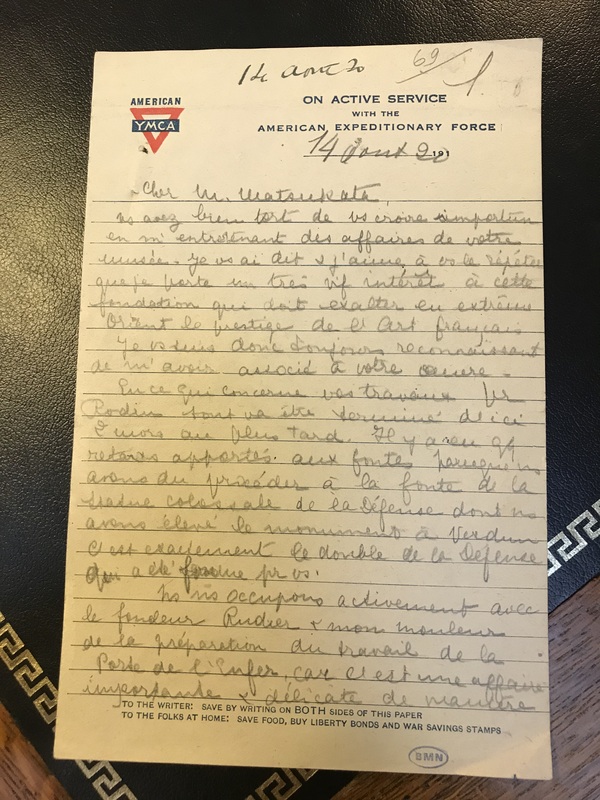 14 aout 20
69/1
AMERICAN
YMCA
ON ACTIVE SERVICE
WITH THE
AMERICAN EXPEDITIONARY FORCE
14 Aout 20 191
Cher M. Matsukata,
ns avez bien tort de vs croire importun
en m'entretenant des affaires de votre
musée. Je vs ai dit & j'aime à vs le répéter
que je porte un très vif intérêt à cette
fondation qui doit exalter en extrême
Orient le prestige de l'Art français
Je vs suis donc toujours reconnaissant
de m'avoir associé à votre œuvre.
En ce qui concerne vos travaux pr
Rodin tout va être terminé d'ici
2 mois au plus tard. Il y a eu qq
retards apportés aux fontes parceque ns
avons du procéder à la fonte de la
statue colossale de la Défense dont ns
avons élevé le monument à Verdun
C'est exactement le double de la Défense
qui a été fondue pr vs.
Ns ns occupons activement avec
le fondeur Rudier & mon mouleur
de la préparation du travail de la
Porte de l'Enfer car c'est une affaire
importante & délicate de manière
TO THE WRITER: SAVE BY WRITING ON BOTH SIDES OF THIS PAPER
TO THE FOLKS AT HOME: SAVE FOOD, BUY LIBERTY BONDS AND WAR SAVINGS STAMPS
BMN